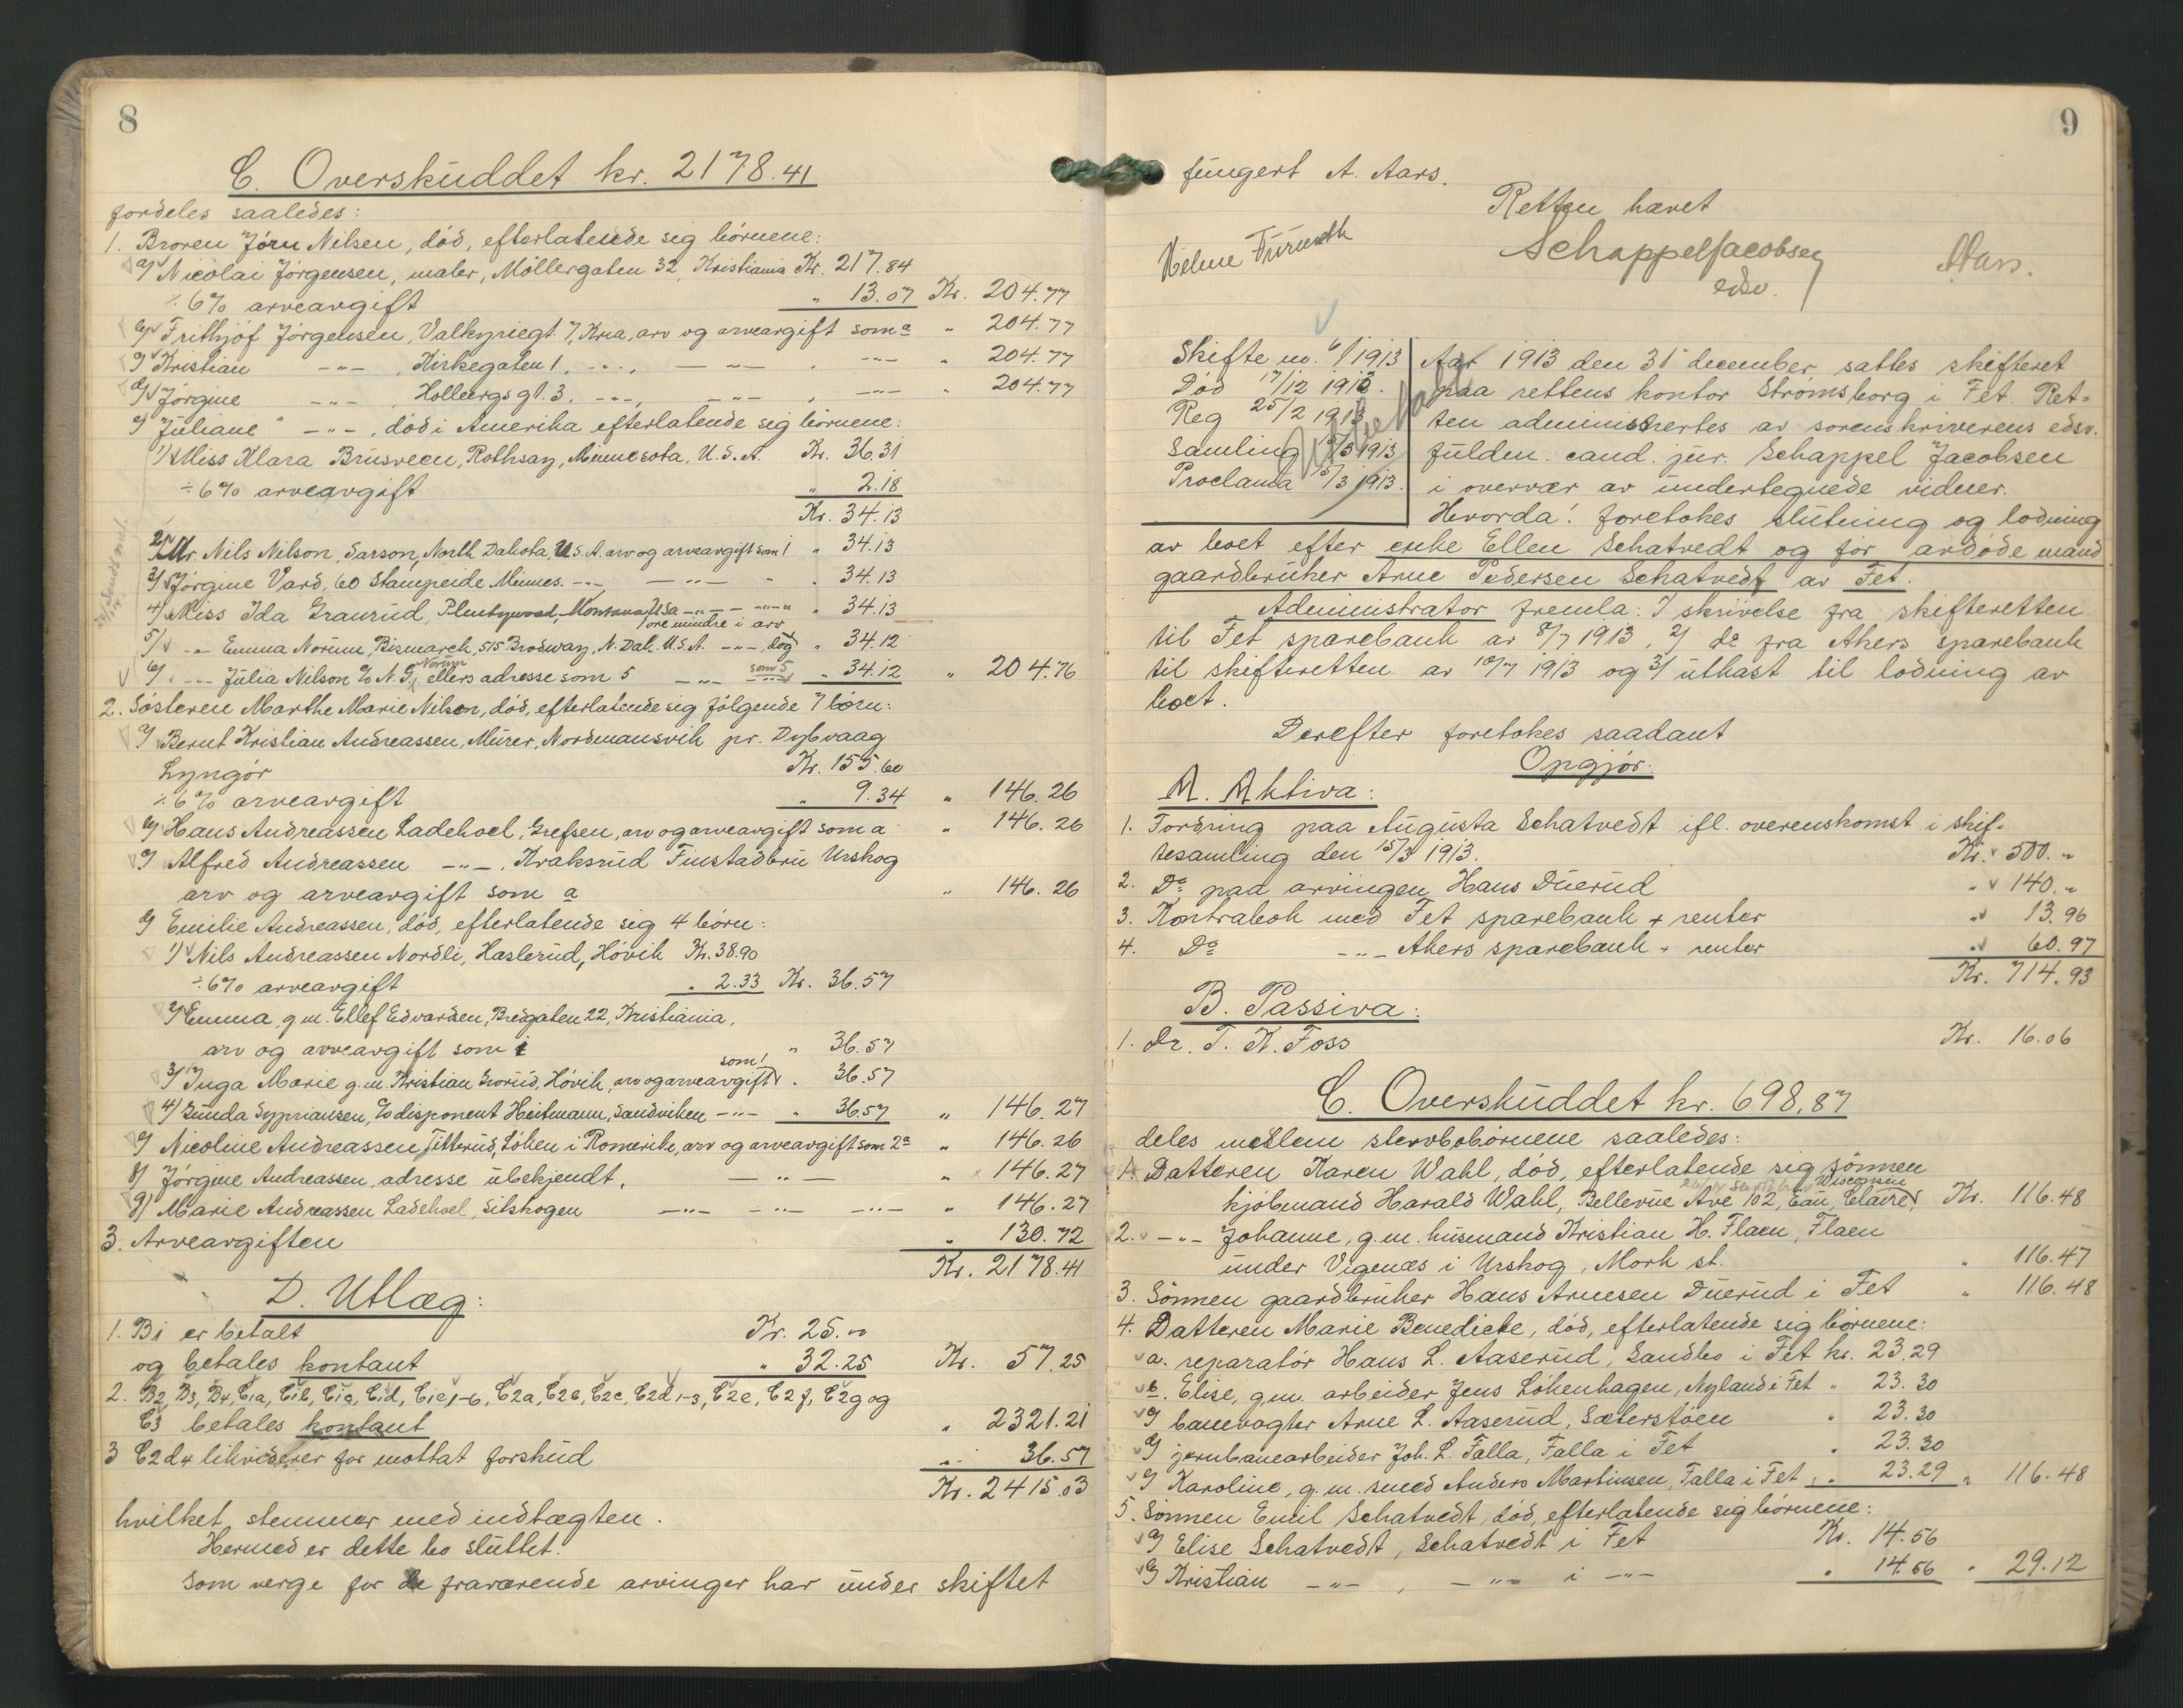 8
C. Overskuddet kr. 2178.41
fordeles saaledes:
1. Broren Jörn Nilsen, död, efterlatende sig börnene:
a/ Nicolai Jörgensen, maler, Möllergaten 32, Kristiania Kr. 217.84
÷ 6% arveavgift " 13.07 Kr. 204.77
b/ Frithjof Jörgensen, Valkyriegt. 7, Kria, arv og arveavgift som a " 204.77
c/ Kristian -"- , Kirkegaten 1, -"-, -"- , -"- " 204.77
d/ Jörgine -"- , Holbergs gt. 3, -"-, -"- , -"- " 204.77
e/ Juliane -"- , död i Amerika efterlatende sig börnene:
1/ Miss Klara Brusveen, Rothsay, Minnesota, U.S.A. Kr. 36.31
÷ 6% arveavgift " 2.18
Kr. 34.13
2/ Mr Nils Nilson, Sarson, North Dakota, U.S.A. arv og arveavgift som 1 " 34.13
3/ Jörgine Vard, 60 Stampeide Minnes. -"- -"- " " 34.13
4/ Miss Ida Graurud, Plentywood, Montana, USa -"- -"- " 34.13
1 öre mindre i arv
5/ -"- Emma Norum, Bismarck, 515 Brodway, N. Dak. U.S.A. -"-, dog " 34.12
6/ -"- Julia Nilson c/o N. G. Norum ellers adresse som 5 -"- som 5 " 34.12 " 204.76
2. Sösteren Marthe Marie Nilsen, död, efterlatende sig fölgende 7 börn:
a/ Bernt Kristian Andreassen, Murer, Nordmansvik pr. Dybvaag
Lyngör Kr. 155.60
÷ 6% arveavgift " 9.34 " 146.26
b/ Hans Andreassen Ladehoel, Grefsen, arv og arveavgift som a " 146.26
c/ Alfred Andreassen -"-, Kraksrud Finstadbru Urskog
arv og arveavgift som a " 146.26
d/ Emilie Andreassen, död, efterlatende sig 4 börn:
1/ Nils Andreassen Nordli, Haslerud, Hövik Kr. 38.90
÷ 6% arveavgift " 2.33 Kr. 36.57
2/ Emma, g.m. Ellef Edvardsen, Bredgaten 22, Kristiania,
arv og arveavgift som 1 " 36.57
3/ Inga Marie g.m. Kristian Grorud, Hövik, arv og arveavgift som 1 " 36.57
4/ Gunda Sypriansen, c/o disponent Heitmann, Sandviken -"- " 36.57 " 146.27
e/ Nicoline Andreassen, Titterud, Löken i Romerike, arv og arveavgift som 2a " 146.26
f/ Jörgine Andreassen, adresse ubekjendt, -"- " 146.27
g/ Marie Andreassen Ladehoel, Sitskogen -"- -"- -"- " 146.27
3. Arveavgiften " 130.72
Kr. 2178.41
D. Utlæg:
1. B1 er betalt Kr. 25.00
og betales kontant " 32.25 Kr. 57.25
2. B2, B3, B4, C1a, C1b, C1c, C1d, C1e1-6, C2a, C2b, C2c, C2d1-3, C2e, C2f, C2g og
C3 betales kontant " 2321.21
3 C2d4 likviderer for mottat forskud " 36.57
Kr. 2415.03
hvilket stemmer med indtægten.
Hermed er dette bo sluttet.
Som verge for de fraværende arvinger har under skiftet
9
fungert A. Aars.
Retten hævet
Schappel Jacobsen
edsv.
Helene Furuseth
Aars.
Skifte no. 6/1913
Död 17/12 1912.
Reg 25/2 1913
Samling 15/3 1913
Proclama 15/3 1913.
Aar 1913 den 31 december sattes skifteret
paa rettens kontor Strömsborg i Fet. Ret-
ten administrertes av sorenskriverens edsv.
fuldm. cand. jur. Schappel Jacobsen
i overvær av undertegnede vidner.
Hvorda! foretokes slutning og lodning
av boet efter enke Ellen Schatvedt og för avdöde mand
gaardbruker Arne Pedersen Schatvedt av Fet.
Administrator fremla: 1/ skrivelse fra skifteretten
til Fet sparebank av 8/7 1913, 2/ do fra Akers sparebank
til skifteretten av 10/7 1913 og 3/ utkast til lodning av
boet.
Derefter foretokes saadant
Opgjör:
A. Aktiva:
1. Fordring paa Augusta Schatvedt ifl. overenskomst i skif-
tesamling den 15/3 1913. Kr. 500.-
2. Do paa arvingen Hans Duerud " 140.-
3. Kontrabok med Fet sparebank + renter " 13.96
4. Do -"- Akers sparebank + renter " 60.97
Kr. 714.93
B. Passiva:
1. Dr. T. K. Foss Kr. 16.06
C. Overskuddet kr. 698,87
deles mellem stervbobörnene saaledes:
1. Datteren Karen Wahl, död, efterlatende sig sönnen
Wisconsin
kjöbmand Harald Wahl, Bellevue Ave 102, Eau Claire, Kr. 116.48
2. -"- Johanne, g.m. husmand Kristian H. Flaen, Flaen
under Vigenæs i Urskog, Mork st. " 116.47
3. Sönnen gaardbruker Hans Arnesen Duerud i Fet " 116.48
4. Datteren Marie Benedicte, död, efterlatende sig börnene:
a. reparatör Hans L. Aaserud, Sandbo i Fet kr. 23.29
b. Elise, g.m. arbeider Jens Lökenhagen, Nyland i Fet " 23.30
c/ banevogter Arne L. Aaserud, Sæterstöen " 23.30
d/ jernbanearbeider Joh. L. Falla, Falla i Fet " 23.30
e/ Karoline, g.m. smed Anders Martinsen, Falla i Fet " 23.29 " 116.48
5. Sönnen Emil Schatvedt, död, efterlatende sig börnene:
a/ Elise Schatvedt, Schatvedt i Fet Kr. 14.56
b/ Kristian -"- , -"- i -"- " 14.56 " 29.12